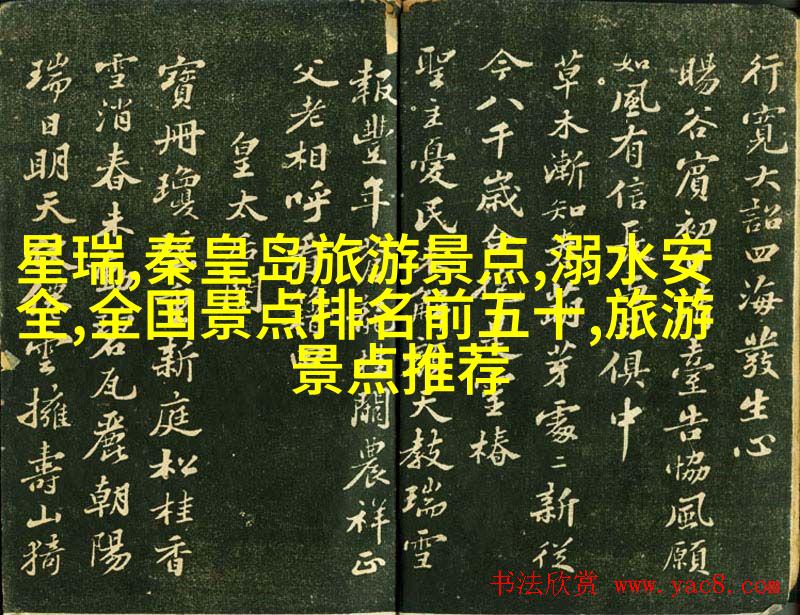 行寬大詔四海發生心
暘谷賓初臺告協風願
如風有信長俱中
草木漸知萌芽處〻新從
今八千歲椿
聖主憂民天教瑞雪
報豐年關農祥正
父老相呼看
皇太
寶冊瓊新庭松桂香
雪消春未動碧瓦麗朝陽
瑞日明天雲擁壽山猗
星瑞,秦皇岛旅游景点,溺水安
全,全国景点排名前五十,旅游
景点推荐
书法欣赏 www.yac8.com